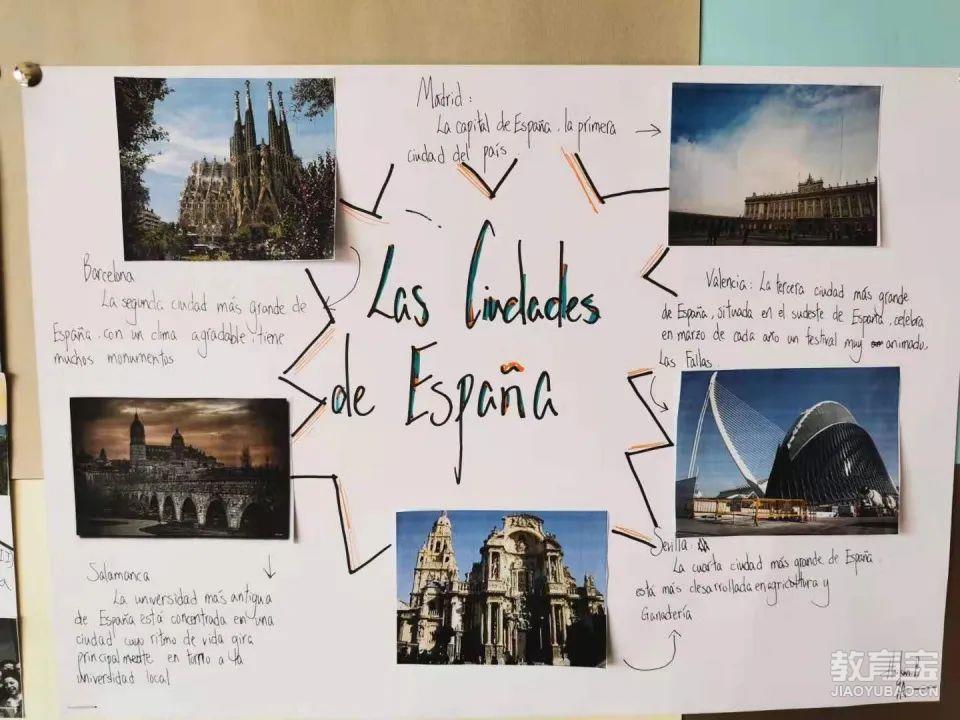 Madrid:
La capital de España, la primera
ciudad del país
Las Ciudades
de España
Barcelona
La segunda ciudad más grande de
España, con un clima agradable, tiene
muchos monumentos
Valencia: La tercera ciudad más grande
de España, situada en el sudeste de España, celebra
en marzo de cada año un festival muy animado,
Las Fallas.
Salamanca
La universidad más antigua
de España está concentrada en una
ciudad cuyo ritmo de vida gira
principalmente en torno a la
universidad local
Sevilla:
La cuarta ciudad más grande de España.
está más desarrollada en agricultura y
Ganadería
教育宝
JIAOYUBAO.CN